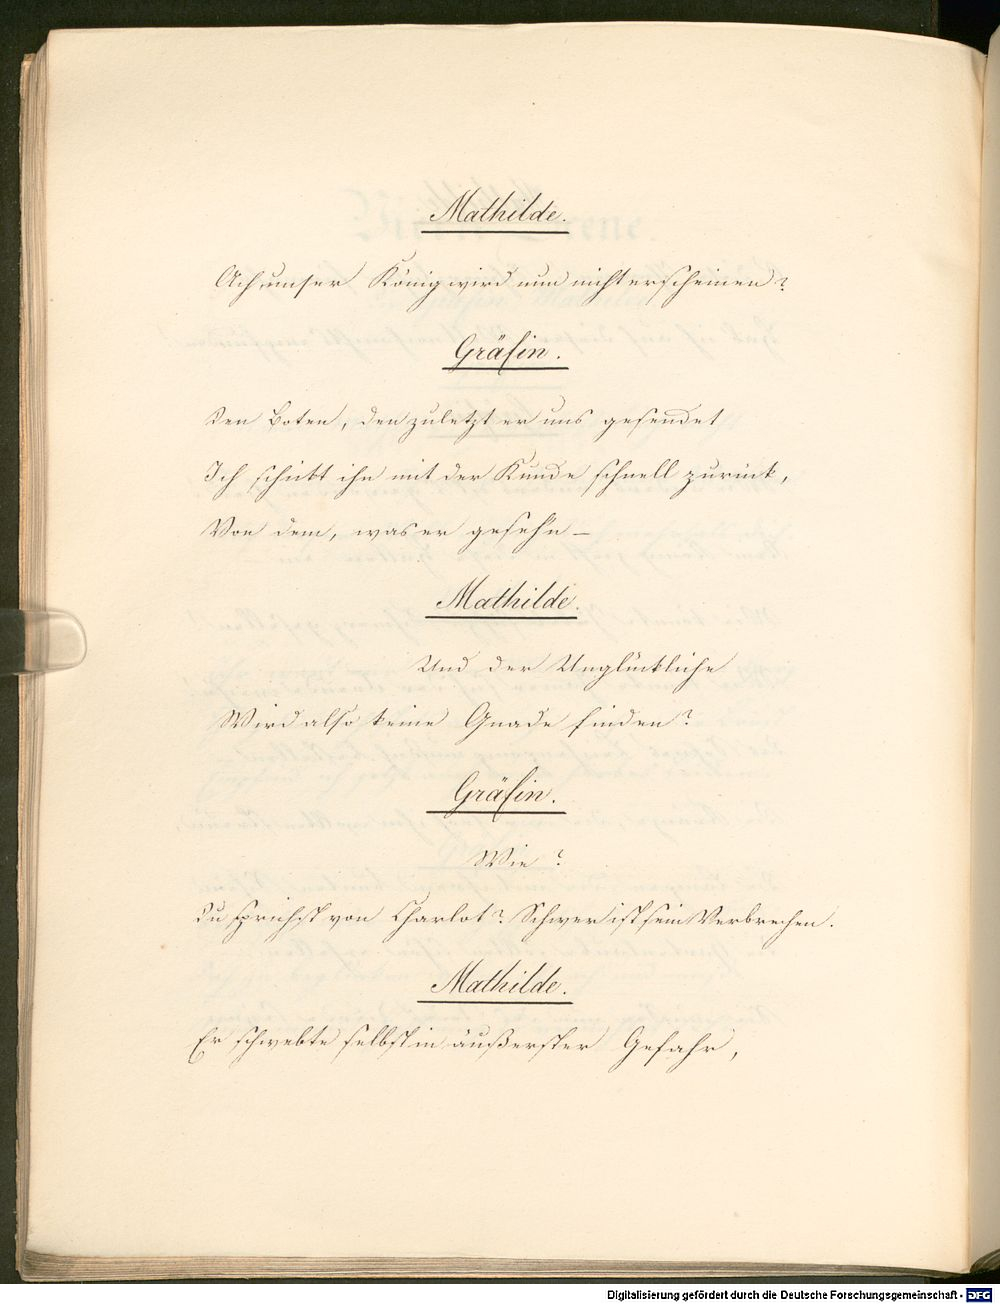 Mathilde.
Ach unser König wird nun nicht erscheinen?
Gräfin.
Den Boten, den zuletzt er uns gesendet
Ich schickt ihn mit der Kunde schnell zurück,
Von dem, was er gesehn –
Mathilde.
Und der Unglückliche
Wird also keine Gnade finden?
Gräfin.
Wie?
Du sprichst von Charlot? Schwer ist sein Verbrechen.
Mathilde.
Er schwebte selbst in äußerster Gefahr,
Digitalisierung gefördert durch die Deutsche Forschungsgemeinschaft - DFG